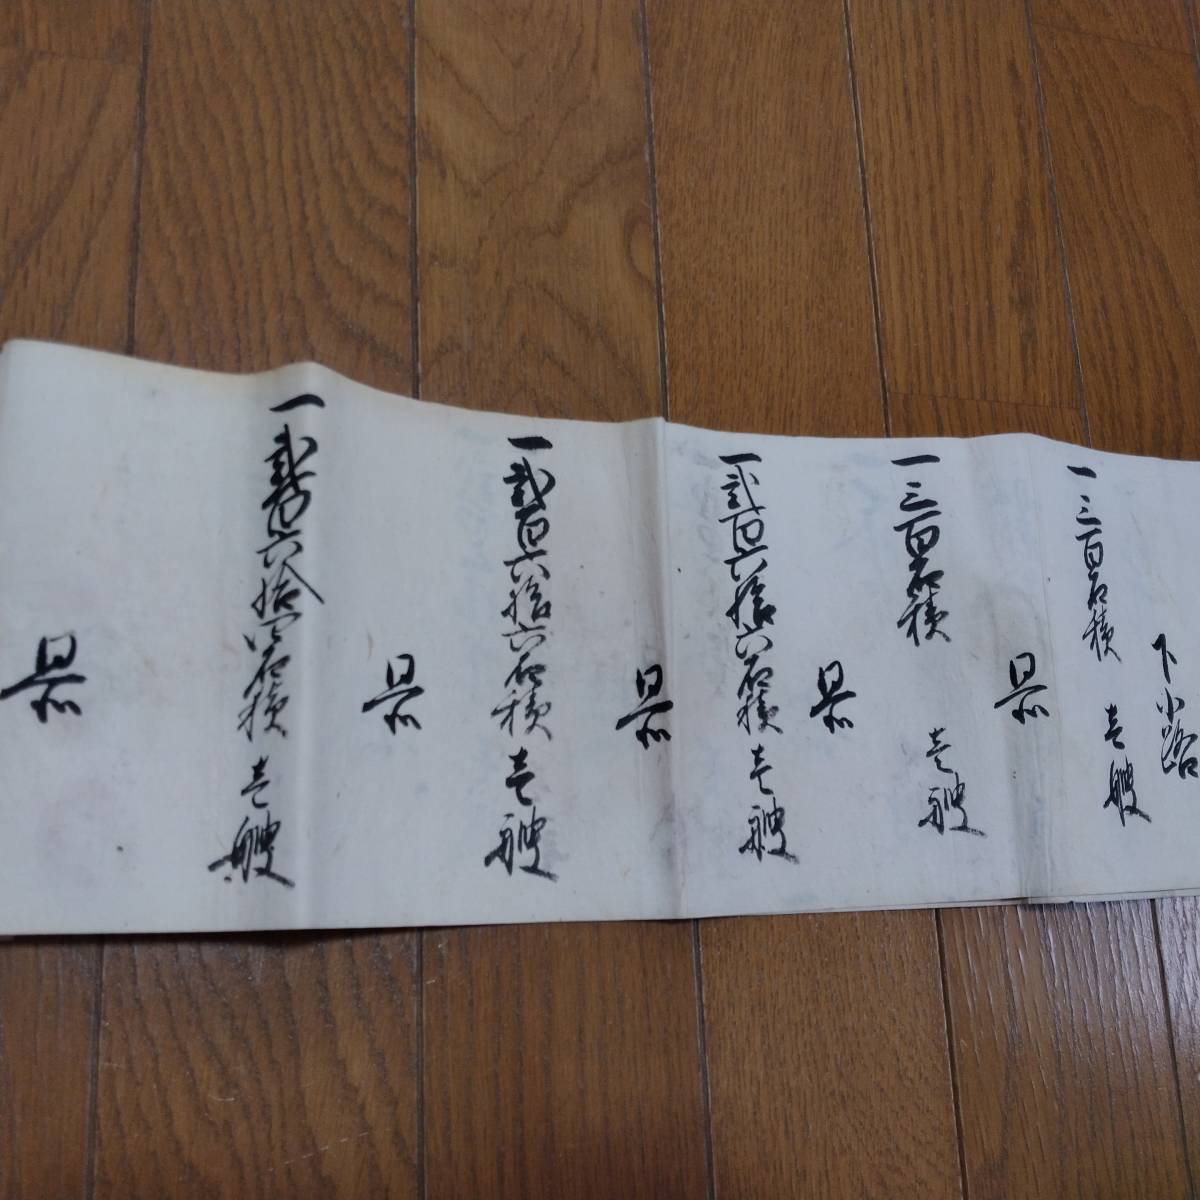 下小路
一三百石積 壱艘
一三百石積 壱艘
一弐百六拾六石積 壱艘
一弐百六拾六石積 壱艘
一弐百六拾四石積 壱艘